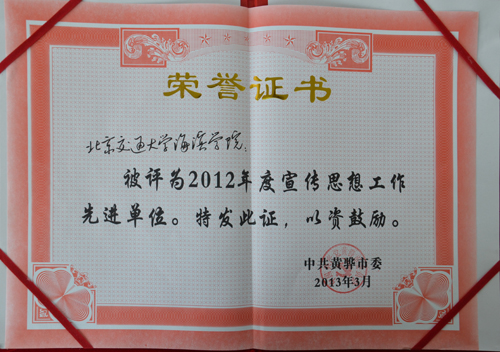 荣誉证书
北京交通大学海滨学院：
被评为2012年度宣传思想工作
先进单位。特发此证，以资鼓励。
中共黄骅市委
2013年3月